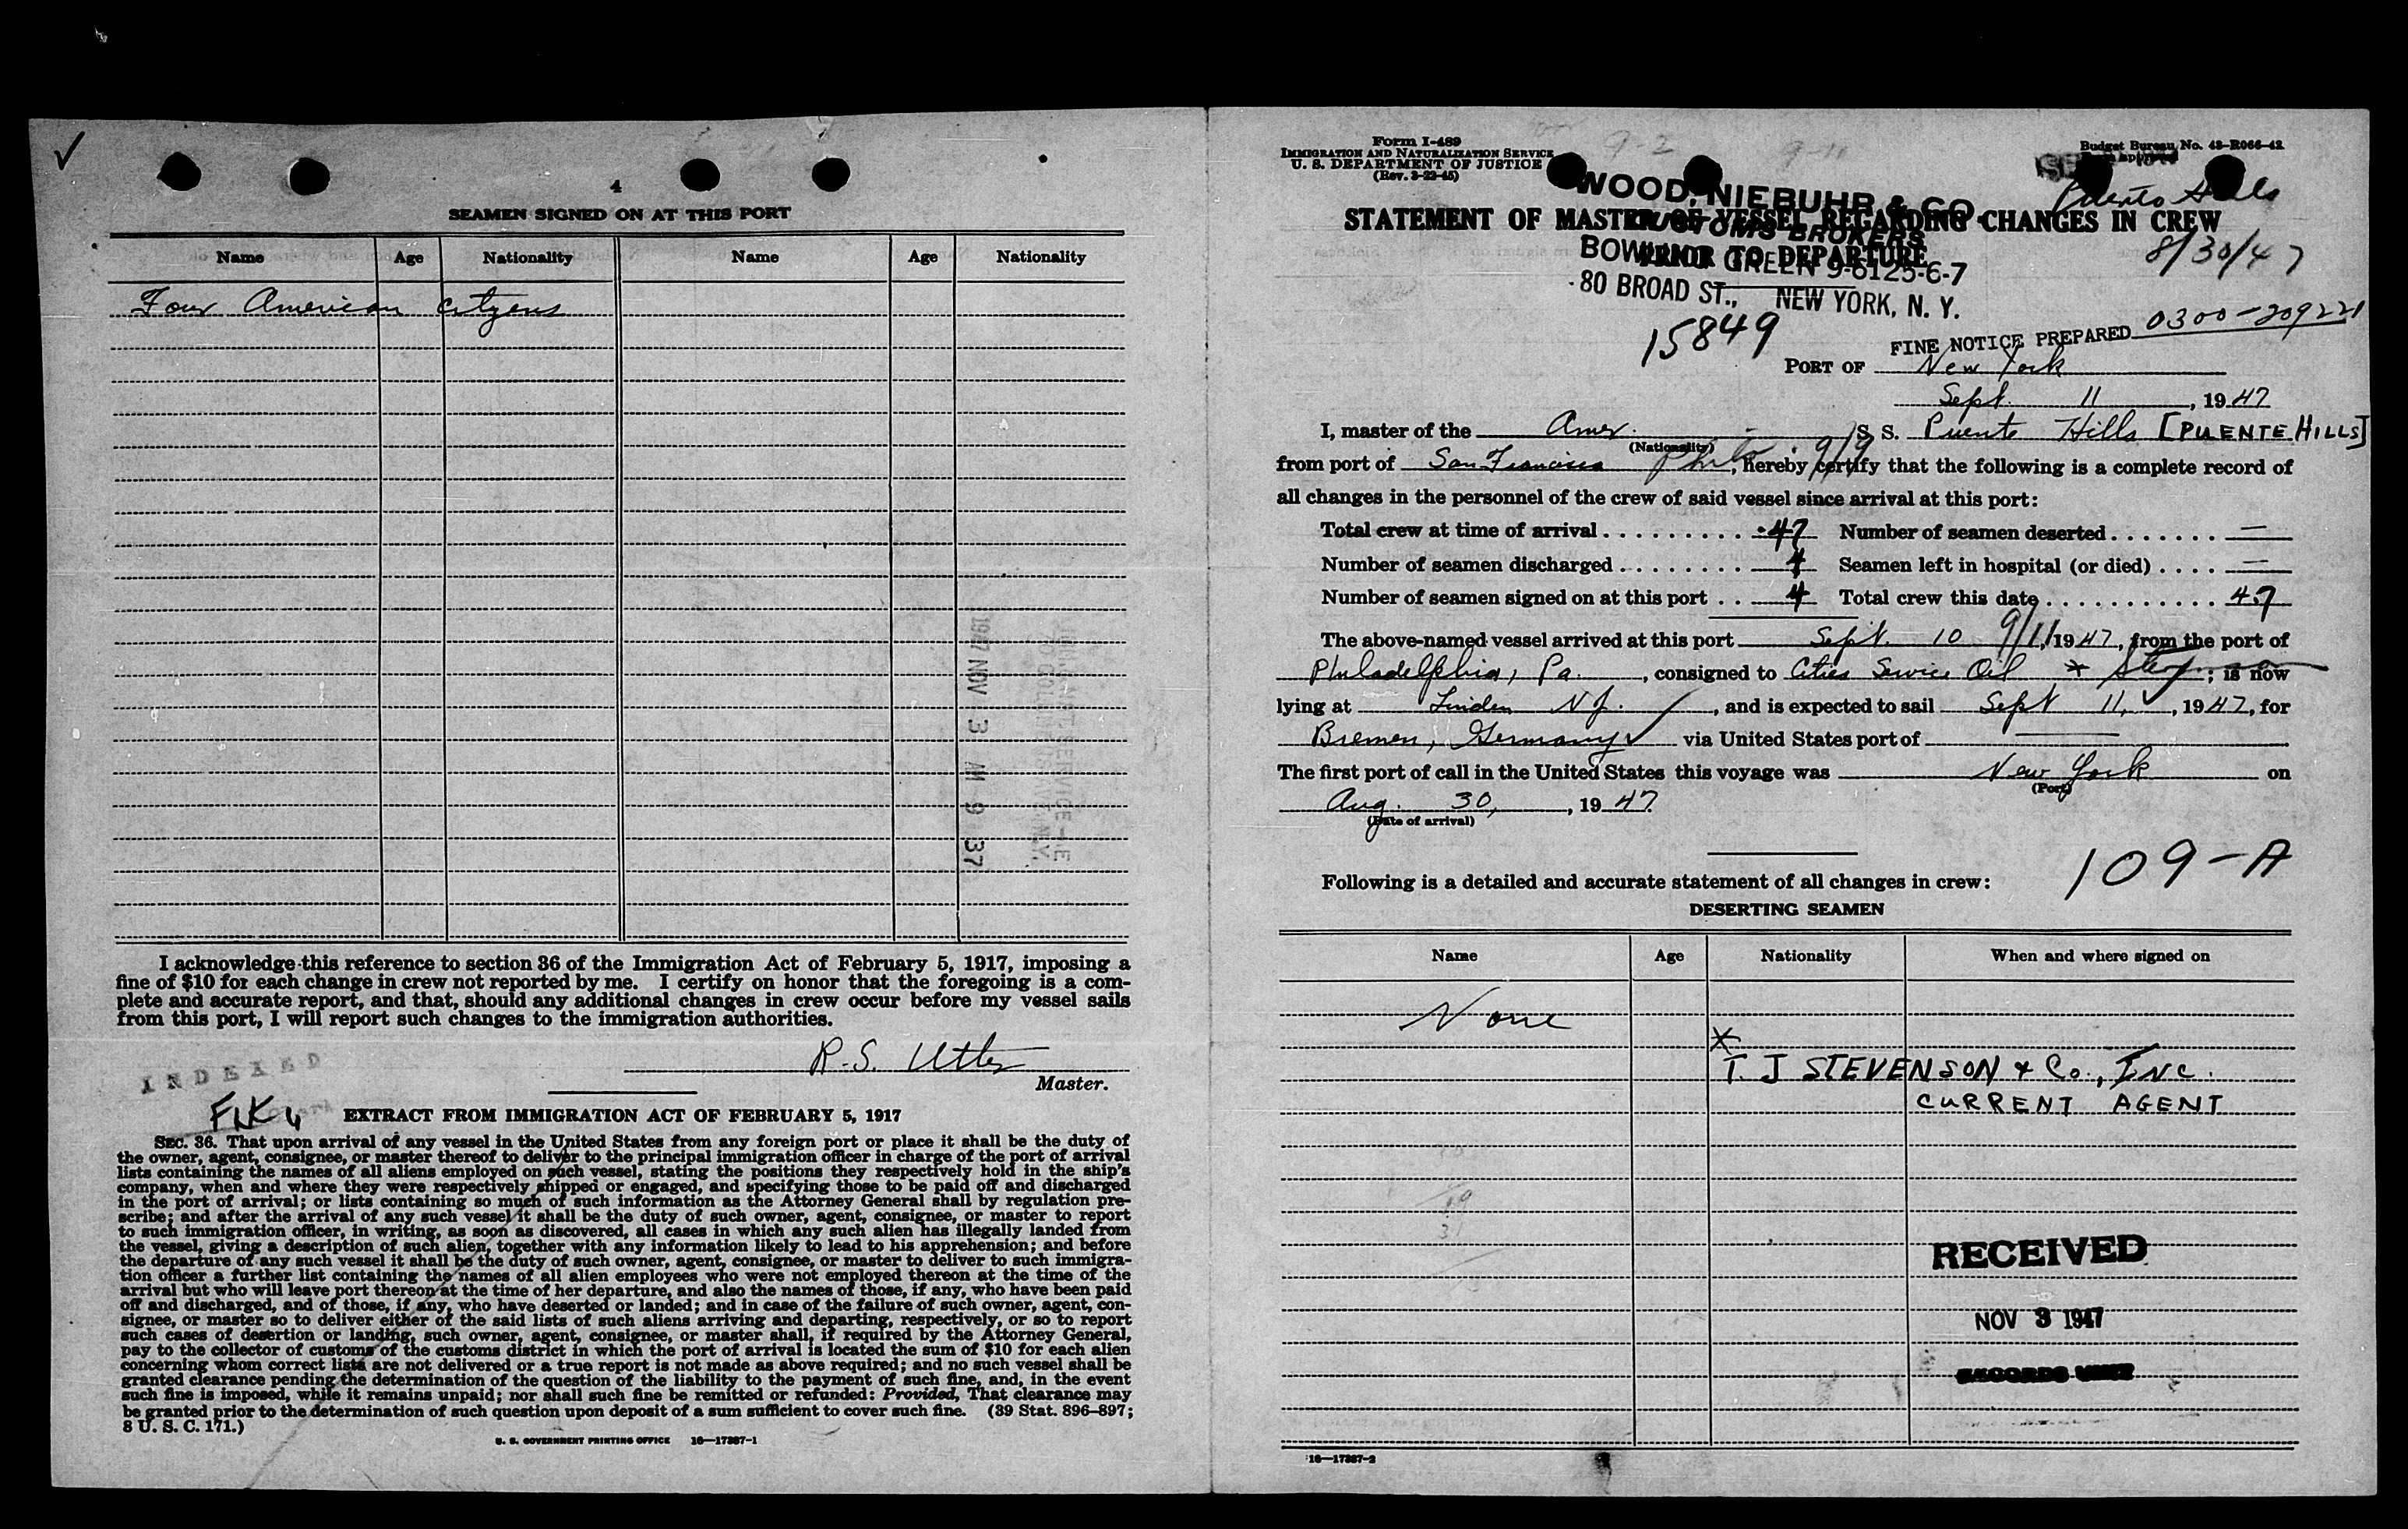 4
SEAMEN SIGNED ON AT THIS PORT
Name Age Nationality Name Age Nationality
Four American Citizens
1947 NOV 3 AM 9 37
I acknowledge this reference to section 36 of the Immigration Act of February 5, 1917, imposing a
fine of $10 for each change in crew not reported by me. I certify on honor that the foregoing is a com-
plete and accurate report, and that, should any additional changes in crew occur before my vessel sails
from this port, I will report such changes to the immigration authorities.
R. S. Utter
Master.
INDEXED
EXTRACT FROM IMMIGRATION ACT OF FEBRUARY 5, 1917
SEC. 36. That upon arrival of any vessel in the United States from any foreign port or place it shall be the duty of
the owner, agent, consignee, or master thereof to deliver to the principal immigration officer in charge of the port of arrival
lists containing the names of all aliens employed on such vessel, stating the positions they respectively hold in the ship's
company, when and where they were respectively shipped or engaged, and specifying those to be paid off and discharged
in the port of arrival; or lists containing so much of such information as the Attorney General shall by regulation pre-
scribe; and after the arrival of any such vessel it shall be the duty of such owner, agent, consignee, or master to report
to such immigration officer, in writing, as soon as discovered, all cases in which any such alien has illegally landed from
the vessel, giving a description of such alien, together with any information likely to lead to his apprehension; and before
the departure of any such vessel it shall be the duty of such owner, agent, consignee, or master to deliver to such immigra-
tion officer a further list containing the names of all alien employees who were not employed thereon at the time of the
arrival but who will leave port thereon at the time of her departure, and also the names of those, if any, who have been paid
off and discharged, and of those, if any, who have deserted or landed; and in case of the failure of such owner, agent, con-
signee, or master so to deliver either of the said lists of such aliens arriving and departing, respectively, or so to report
such cases of desertion or landing, such owner, agent, consignee, or master shall, if required by the Attorney General,
pay to the collector of customs of the customs district in which the port of arrival is located the sum of $10 for each alien
concerning whom correct lists are not delivered or a true report is not made as above required; and no such vessel shall be
granted clearance pending the determination of the question of the liability to the payment of such fine, and, in the event
such fine is imposed, while it remains unpaid; nor shall such fine be remitted or refunded: Provided, That clearance may
be granted prior to the determination of such question upon deposit of a sum sufficient to cover such fine. (39 Stat. 896–897;
8 U. S. C. 171.)
U. S. GOVERNMENT PRINTING OFFICE 16—17387-1
Form I-489
IMMIGRATION AND NATURALIZATION SERVICE
U. S. DEPARTMENT OF JUSTICE
(Rev. 3-22-45)
9-2
9-11
Budget Bureau No. 43-R066-42
Puente Hills
8/30/47
WOOD, NIEBUHR & CO.
CUSTOMS BROKERS
BOWLING GREEN 9-6125-6-7
80 BROAD ST., NEW YORK, N. Y.
STATEMENT OF MASTER OF VESSEL REGARDING CHANGES IN CREW
PRIOR TO DEPARTURE
15849
FINE NOTICE PREPARED 0300-209221
PORT OF New York
Sept. 11, 1947
I, master of the Amer. S. S. Puente Hills [PUENTE HILLS]
(Nationality)
from port of San Francisco Phila. 9/9, hereby certify that the following is a complete record of
all changes in the personnel of the crew of said vessel since arrival at this port:
Total crew at time of arrival 47 Number of seamen deserted —
Number of seamen discharged 4 Seamen left in hospital (or died) —
Number of seamen signed on at this port 4 Total crew this date 47
The above-named vessel arrived at this port Sept. 10 9/11, 1947, from the port of
Philadelphia, Pa., consigned to Cities Service Oil *; is now
lying at Linden N J., and is expected to sail Sept 11, 1947, for
Bremen, Germany via United States port of —
The first port of call in the United States this voyage was New York on
(Port)
Aug. 30, 1947
(Date of arrival)
109-A
Following is a detailed and accurate statement of all changes in crew:
DESERTING SEAMEN
Name Age Nationality When and where signed on
None
*
T. J STEVENSON & Co., INC.
CURRENT AGENT
RECEIVED
NOV 3 1947
RECORDS UNIT
16—17387-2